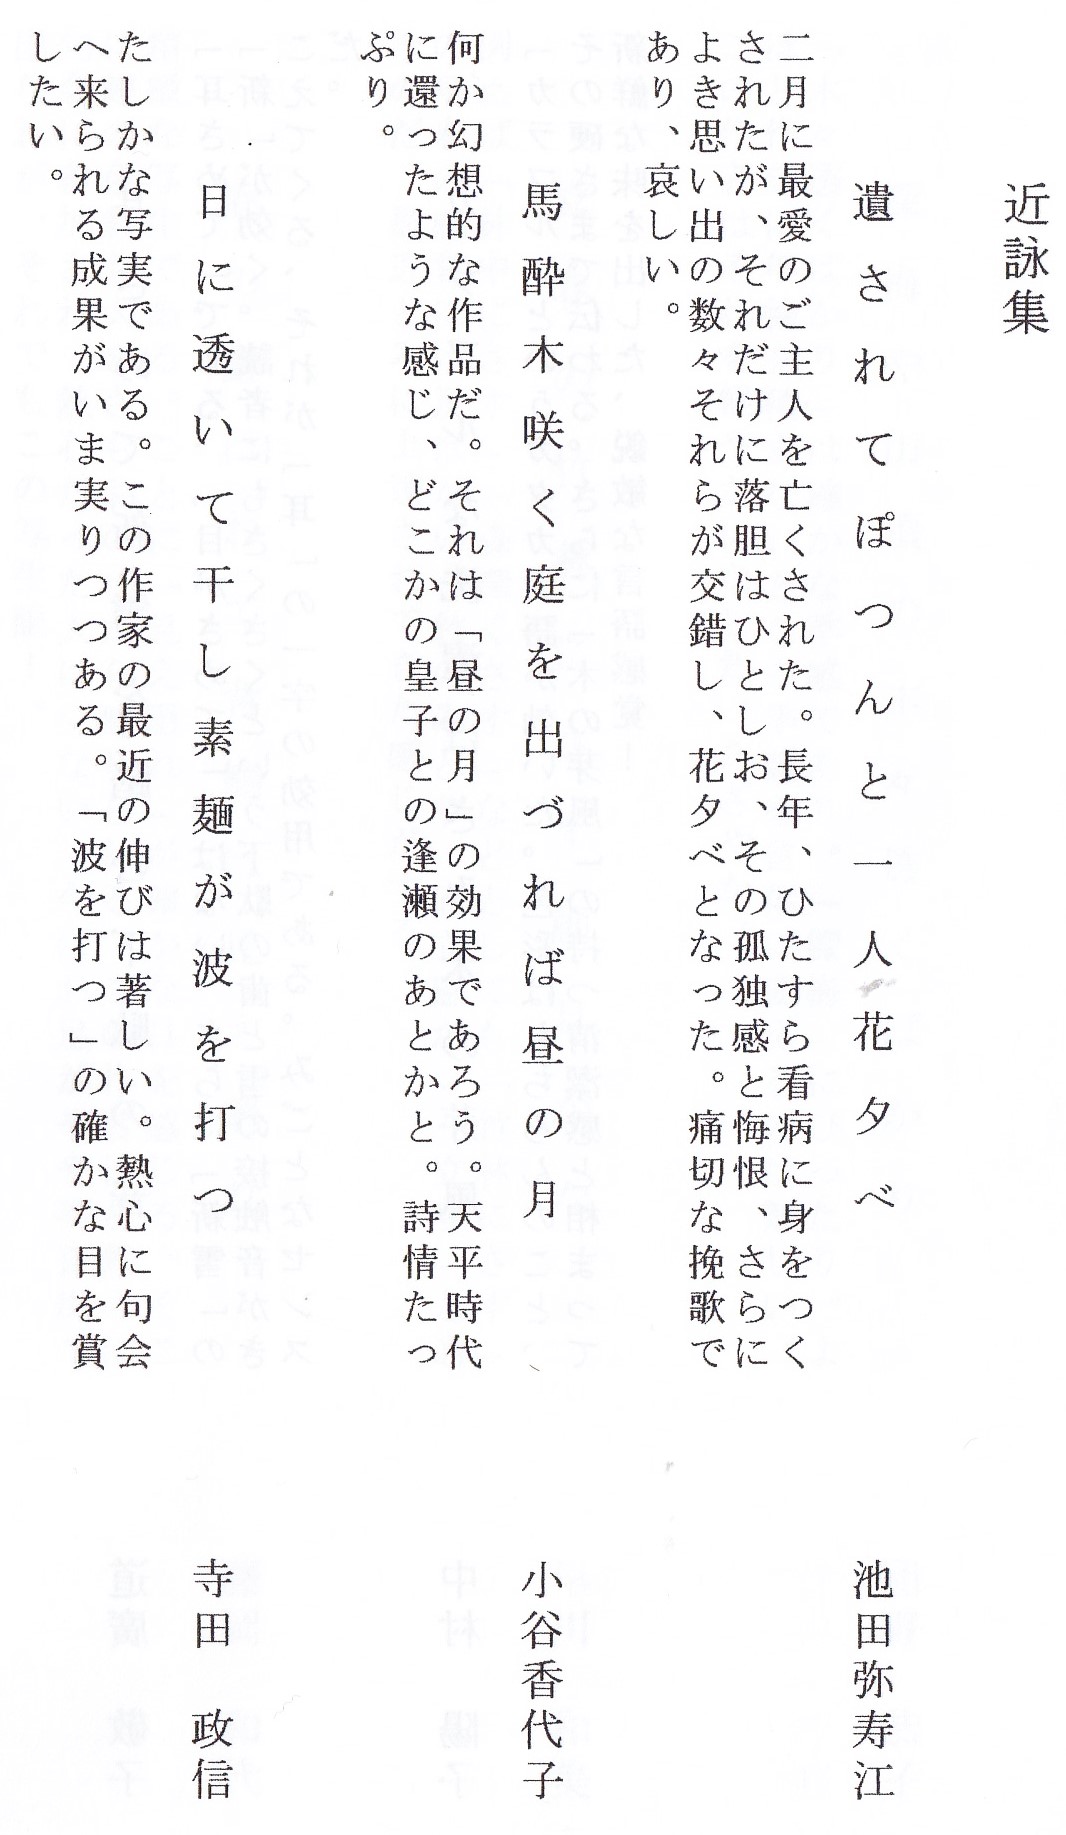 近詠集
遺されてぽつんと一人花夕べ
池田弥寿江
二月に最愛のご主人を亡くされた。長年、ひたすら看病に身をつく
されたが、それだけに落胆はひとしお、その孤独感と悔恨、さらに
よき思い出の数々それらが交錯し、花夕べとなった。痛切な挽歌で
あり、哀しい。
馬酔木咲く庭を出づれば昼の月
小谷香代子
何か幻想的な作品だ。それは「昼の月」の効果であろう。天平時代
に還ったような感じ、どこかの皇子との逢瀬のあとかと。詩情たっ
ぷり。
日に透いて干し素麺が波を打つ
寺田 政信
たしかな写実である。この作家の最近の伸びは著しい。熱心に句会
へ来られる成果がいま実りつつある。「波を打つ」の確かな目を賞
したい。